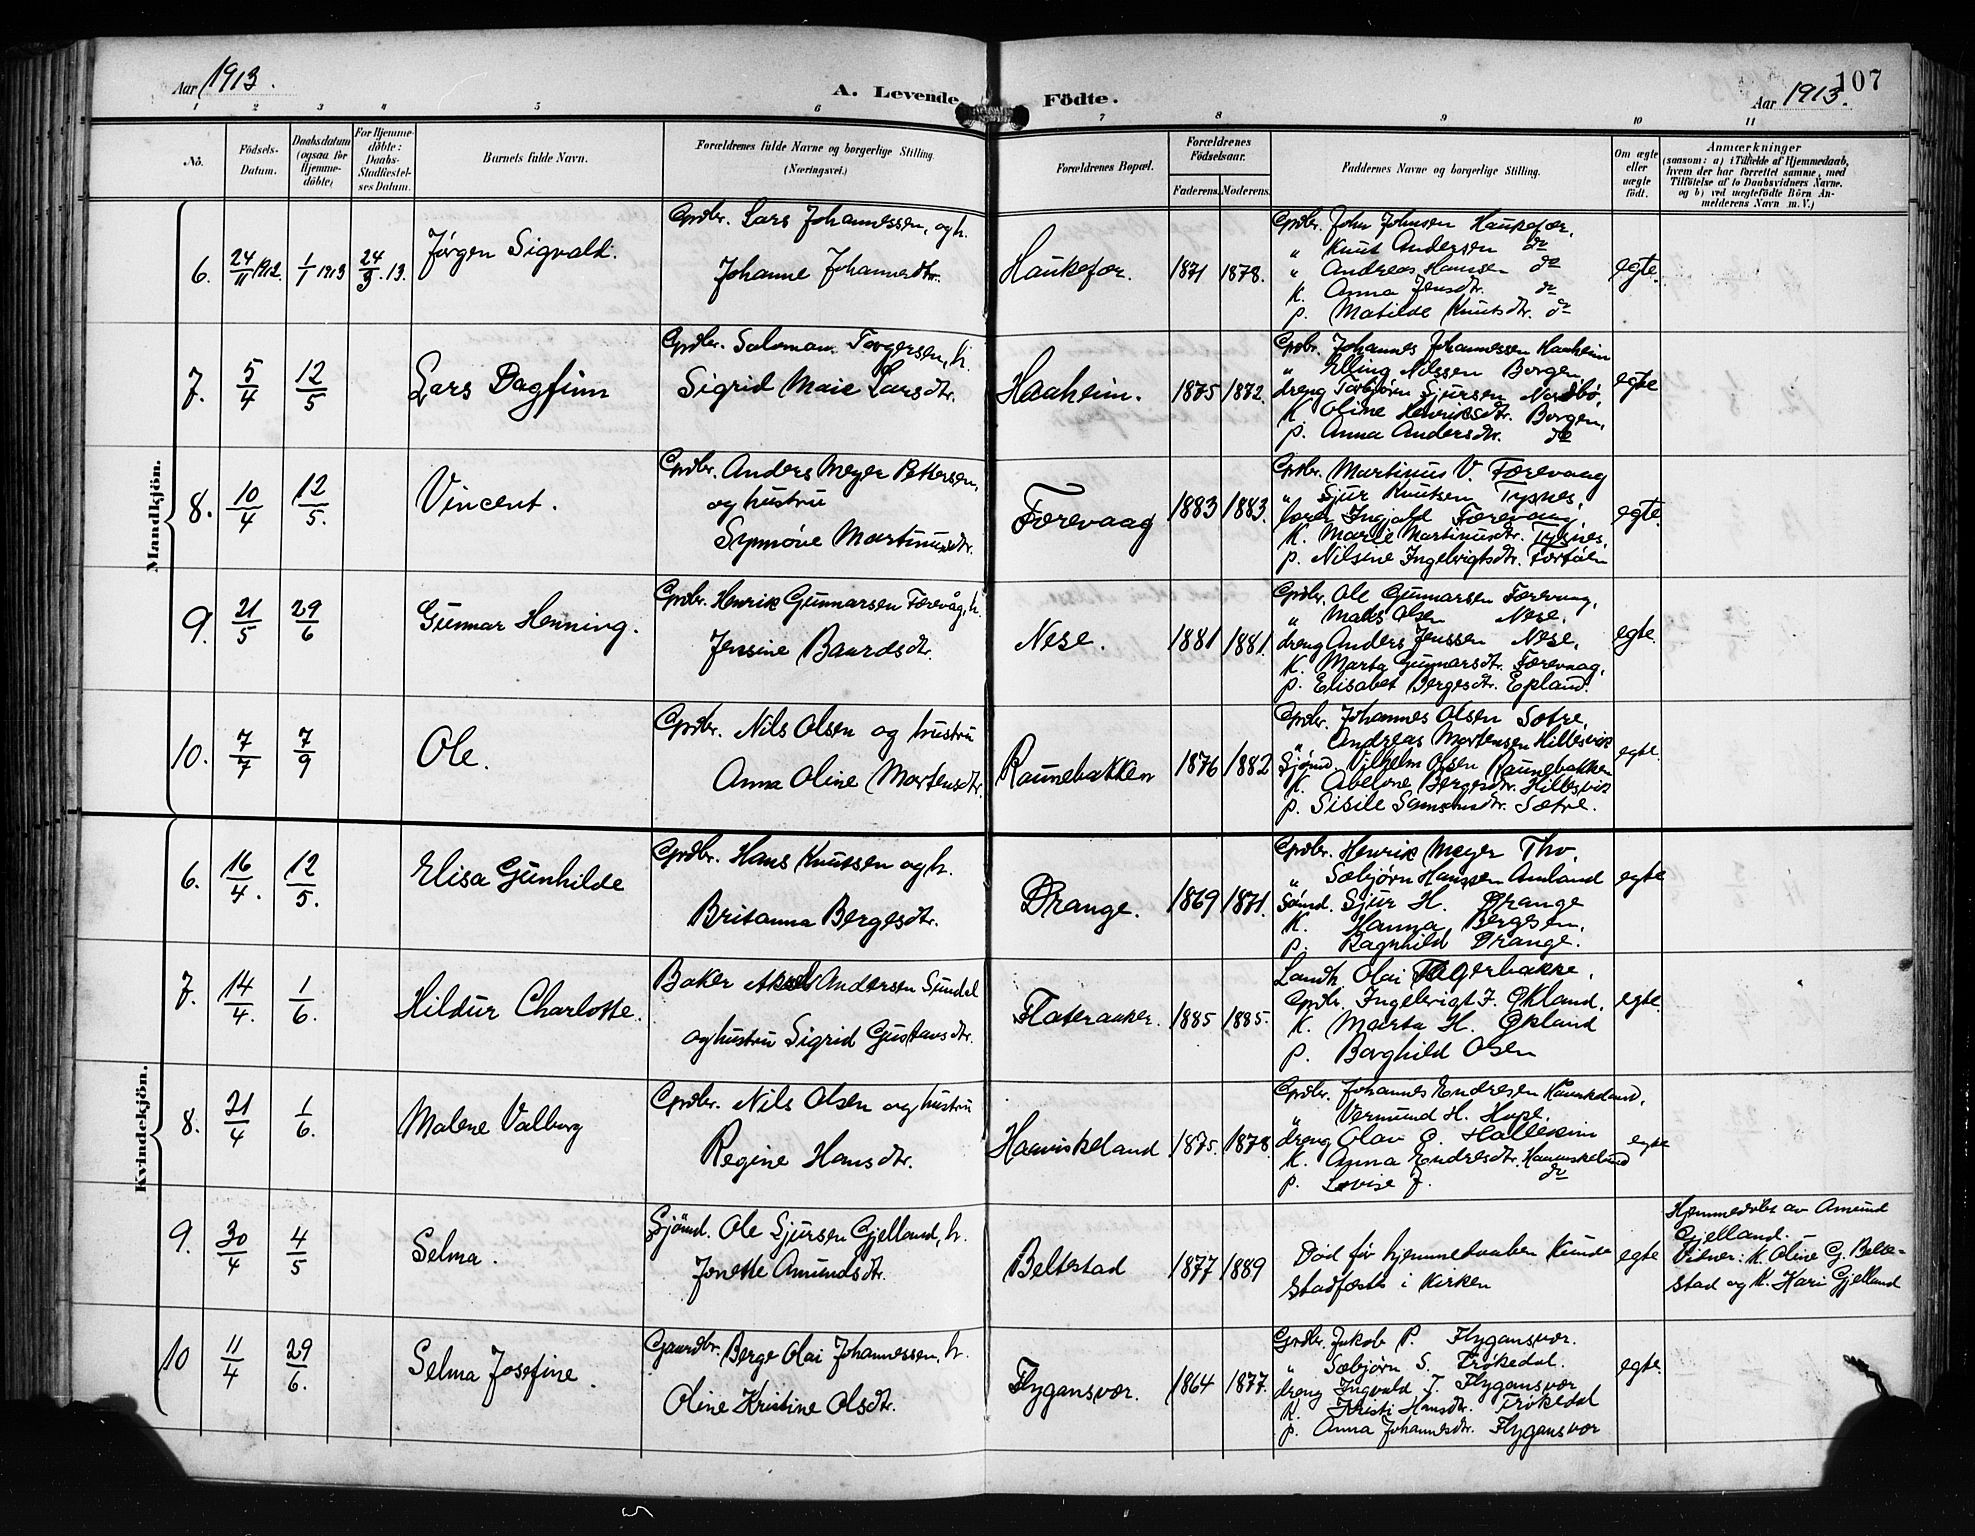 Aar 1913.
A. Levende Födte.
Aar 1913.
107
1 2 3 4 5 6 7 8 9 10 11
No.
Födsels-Datum.
Daabsdatum (ogsaa for Hjemme-döbte)
For Hjemme-döbte: Daabs-Stadfæstel-ses Datum.
Barnets fulde Navn.
Forældrenes fulde Navne og borgerlige Stilling. (Næringsvei.)
Forældrenes Bopæl.
Forældrenes Födselsaar.
Faderens. Moderens.
Faddernes Navne og borgerlige Stilling.
Om ægte eller uægte födt.
Anmærkninger
(saasom: a) i Tilfælde af Hjemmedaab, hvem der har forrettet samme, med Tilföielse af to Daabsvidners Navne, og b) ved uægtefödte Börn An-melderens Navn m. V.)
Mandkjön.
6. 24/11 1912. 1/1 1913 24/3.13. Jørgen Sigvald.
Grdbr. Lars Johannessen, og h.
Johanne Johannesdtr.
Haukefær. 1871 1878.
Grdbr. John Johnsen Haukefær,
" Knut Andersen do
" Andreas Hansen do
K. Anna Jensdtr. do
p. Matilde Knutsdtr. do
egte.
7. 5/4 12/5 Lars Dagfinn
Grdbr. Salomon Torgersen, h.
Sigrid Marie Larsdtr.
Haaheim. 1875 1872.
Grdbr. Johannes Johannessen Haaheim
" Elling Nilssen Borgen,
dreng Torbjørn Sjursen Nordbø,
K. Oline Henriksdtr. Borgen,
p. Anna Andersdtr. do
egte
8. 10/4 12/5. Vincent.
Grdbr. Anders Meyer Pettersen,
og hustru
Synnøve Martinusdtr.
Færevaag 1883 1883.
Grdbr. Martinus V. Færevaag
" Sjur Knutsen Tysnes,
Ingjald Færevaag,
K. Marie Martinusdtr. Tysnes,
p. Nilsine Ingebrigtsdtr.
egte.
9. 21/5 29/6 Gunnar Henning.
Grdbr. Henrik Gunnarsen Færevåg, h.
Jensine Baardsdtr.
Nese. 1881 1881.
Grdbr. Ole Gunnarsen Færevaag,
" Mads Olsen Nese,
dreng Anders Jenssen Nese,
K. Marta Gunnarsdtr. Færevaag,
p. Elisabet Bergesdtr. Epland.
egte.
10. 7/7 7/9 Ole.
Grdbr. Nils Olsen og hustru
Anna Oline Mortensdtr.
Raunebakken 1876 1882
Grdbr. Johannes Olsen Sætre,
" Andreas Mortensen Hillesvik
Sjømd. Vilhelm Olsen Raunebakken
K. Abelone Bergesdtr. Hillesvik
p. Sisile Samsonsdtr. Sætre.
egte.
Kvindekjön.
6. 16/4. 12/5. Elisa Gunhilde
Grdbr. Hans Knutsen og h.
Britanna Bergesdtr.
Drange. 1869 1871.
Grdbr. Henrik Meyer Tho,
" Sæbjørn Hanssen Amland
Sømd. Sjur H. Drange
K. Hanna Bergsen,
p. Ragnhild Drange.
egte
7. 14/4. 1/6. Hildur Charlotte.
Baker Aksel Andersen Sundal
og hustru Sigrid Gustavsdtr.
Flateraaker. 1885 1885.
Landh. Olai Fagerbakke,
Grdbr. Ingebrigt J. Økland,
K. Marta H. Økland
p. Borghild Olsen
egte.
8. 21/4 1/6. Malene Valborg
Grdbr. Nils Olsen og hustru
Regine Hansdtr.
Haaviskeland 1875. 1878.
Grdbr. Johannes Endresen Haaviskeland,
" Vermund H. Hope.
dreng Olav O.
K. Anna Endresdtr. Haaviskeland
p. Lovise J. do
egte
9. 30/4 4/5 Selma.
Sjömd. Ole Sjursen Gjelland, h.
Jonette Amundsdtr.
Beltestad 1877 1889
Død før hjemmedaaben kunde
stadfæstes i Kirken
egte
Hjemmedøbt av Amund
Gjelland.
Vidner: K. Oline G. Belte-
stad og K. Kari Gjelland
10 11/4 29/6. Selma Josefine.
Gaardbr. Berge Olai Johannessen, h.
Oline Kristine Olsdtr.
Flygansvær. 1864 1877.
Grdbr. Jakob P. Flygansvær.
" Sæbjørn S. Frøkedal.
dreng Ingvald J. Flygansvær
K. Kristi Hansdtr. Frøkedal
p. Anna Johannesdtr. Flygansvær
egte.